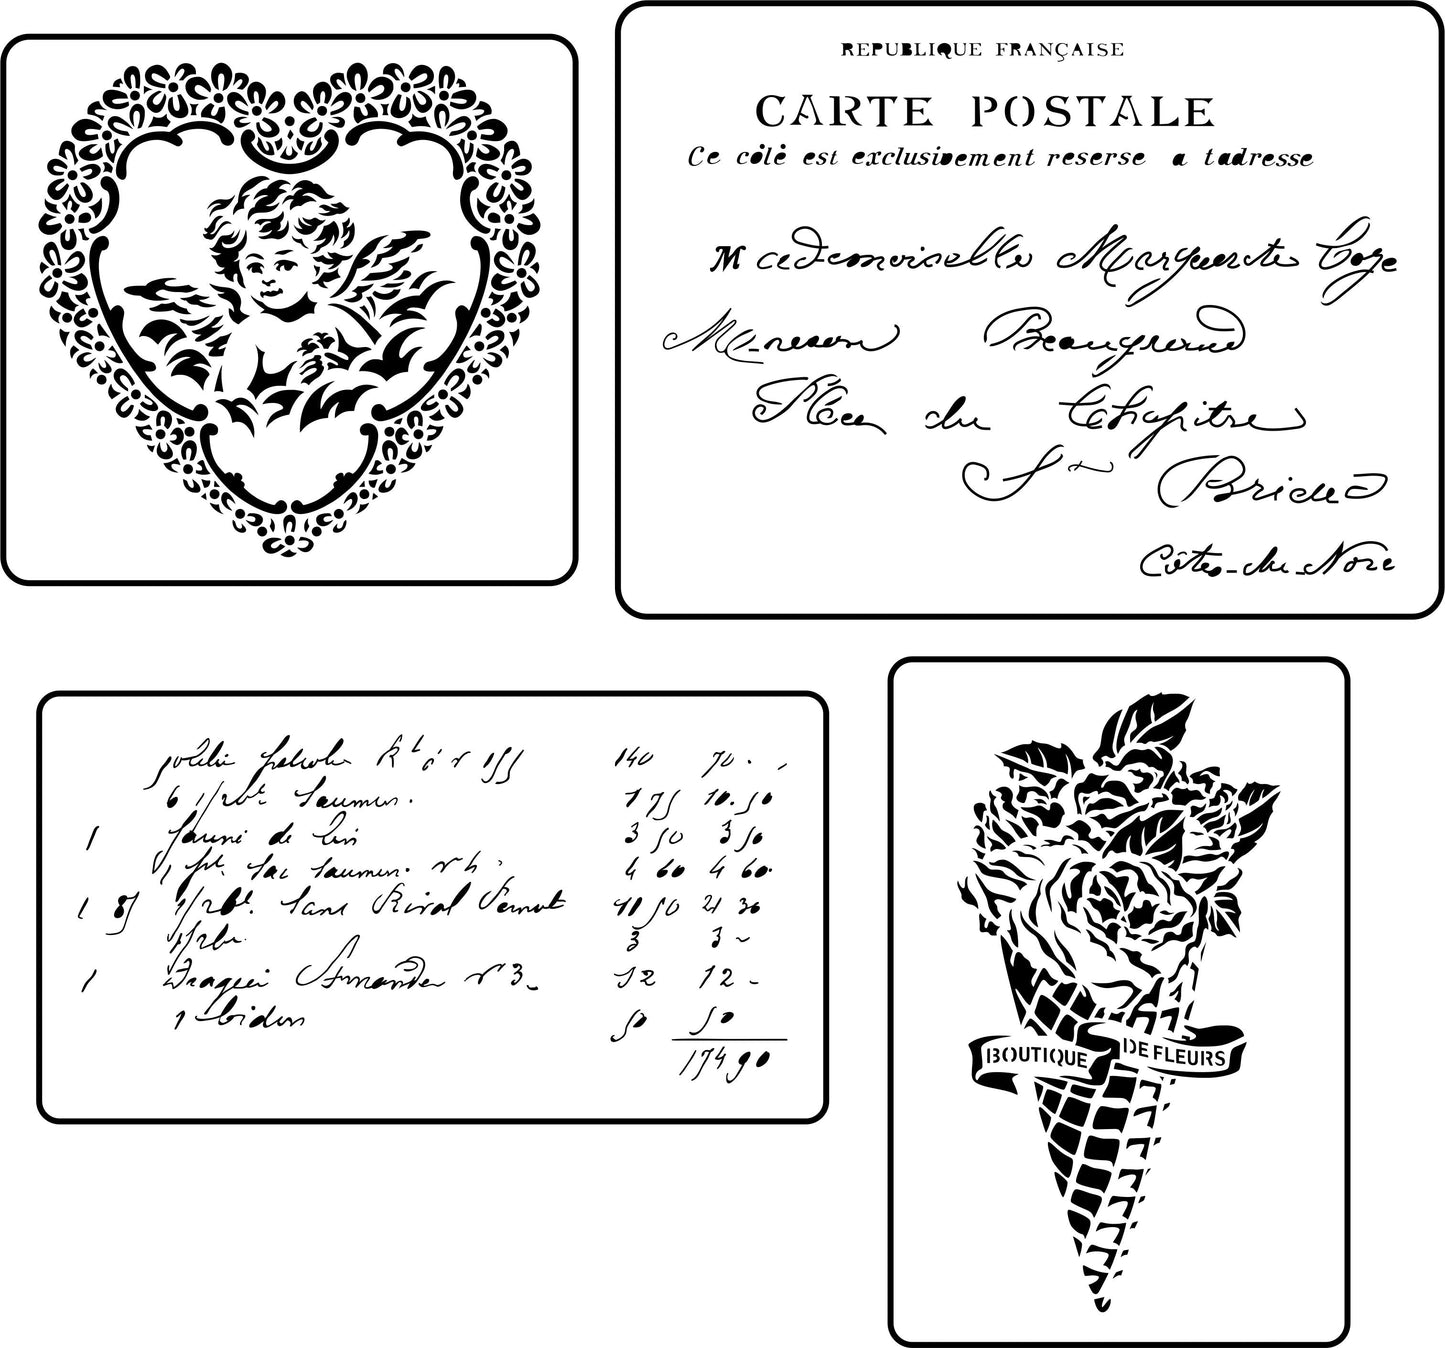 REPUBLIQUE FRANÇAISE
CARTE POSTALE
Ce côlè est exclusivement reserse a tadresse
Mademoiselle Marguerite
Beaugrand
Place du Chapitre
St Brieuc
Côtes-du-Nord
140 70.
6 1/2bt Saumur. 1 75 10.50
1 de lin 3 50 3 50
1 Sac Saumur. n 4 60 4 60
1 1/2bt. Sans Rival 41 50 21 30
1/2bt. 3 3 ~
1 Amandes n 3_ 12 12 -
1 bidon 50 50
174 90
BOUTIQUE DE FLEURS